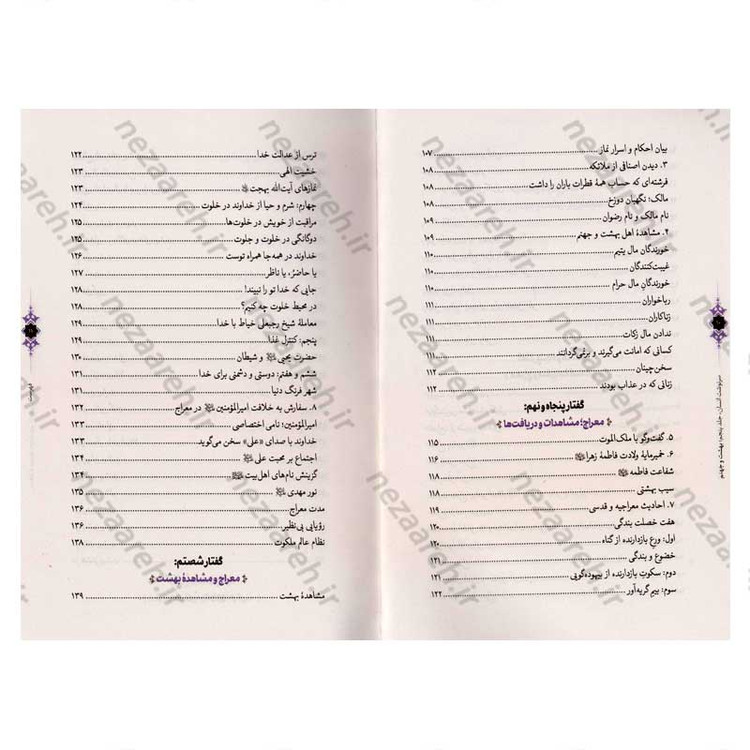 بیان احکام و اسرار نماز ........ ۱۰۷
۳. دیدن اصنافی از ملائکه ........ ۱۰۸
فرشته‌ای که حساب همهٔ قطرات باران را داشت ........ ۱۰۸
مالک: نگهبان دوزخ ........ ۱۰۸
نام مالک و نام رضوان ........ ۱۰۹
۴. مشاهدهٔ اهل بهشت و جهنم ........ ۱۰۹
خورندگان مال یتیم ........ ۱۱۰
غیبت‌کنندگان ........ ۱۱۰
خورندگان مال حرام ........ ۱۱۰
رباخواران ........ ۱۱۱
زناکاران ........ ۱۱۱
ندادن مال زکات ........ ۱۱۱
کسانی که امانت می‌گیرند و برنمی‌گردانند ........ ۱۱۱
سخن‌چینان ........ ۱۱۲
زنانی که در عذاب بودند ........ ۱۱۲
گفتار پنجاه و نهم:
معراج؛ مشاهدات و دریافت‌ها
۵. گفت‌وگو با ملک‌الموت ........ ۱۱۵
۶. خمیرمایهٔ ولادت فاطمهٔ زهرا ........ ۱۱۶
شفاعت فاطمه ........ ۱۱۸
سیب بهشتی ........ ۱۱۸
۷. احادیث معراجیه و قدسی ........ ۱۱۹
هفت خصلت بندگی ........ ۱۲۰
اول: ورع بازدارنده از گناه ........ ۱۲۰
خضوع و بندگی ........ ۱۲۱
دوم: سکوت بازدارنده از بیهوده‌گویی ........ ۱۲۱
سوم: بیم گریه‌آور ........ ۱۲۲
سرنوشت انسان، جلد پنجم: بهشت و جهنم
ترس از عدالت خدا ........ ۱۲۲
خشیت الهی ........ ۱۲۳
نمازهای آیت‌الله بهجت ........ ۱۲۳
چهارم: شرم و حیا از خداوند در خلوت ........ ۱۲۴
مراقبت از خویش در خلوت‌ها ........ ۱۲۵
دوگانگی در خلوت و جلوت ........ ۱۲۵
خداوند در همه‌جا همراه توست ........ ۱۲۶
یا حاضرُ، یا ناظر ........ ۱۲۷
جایی که خدا تو را نبیند! ........ ۱۲۸
در محیط خلوت چه کنیم؟ ........ ۱۲۸
معاملهٔ شیخ رجبعلی خیاط با خدا ........ ۱۲۹
پنجم: کنترل غذا ........ ۱۲۹
حضرت یحیی و شیطان ........ ۱۳۰
ششم و هفتم: دوستی و دشمنی برای خدا ........ ۱۳۱
شهر فرنگ دنیا ........ ۱۳۱
۸. سفارش به خلافت امیرالمؤمنین در معراج ........ ۱۳۲
امیرالمؤمنین؛ نامی اختصاصی ........ ۱۳۳
خداوند با صدای «علی» سخن می‌گوید ........ ۱۳۳
اجتماع بر محبت علی ........ ۱۳۴
گزینش نام‌های اهل‌بیت ........ ۱۳۴
نور مهدی ........ ۱۳۵
مدت معراج ........ ۱۳۶
رؤیایی بی‌نظیر ........ ۱۳۶
نظام عالم ملکوت ........ ۱۳۸
گفتار شصتم:
معراج و مشاهدهٔ بهشت
مشاهدهٔ بهشت ........ ۱۳۹
فهرست
nezaareh.ir